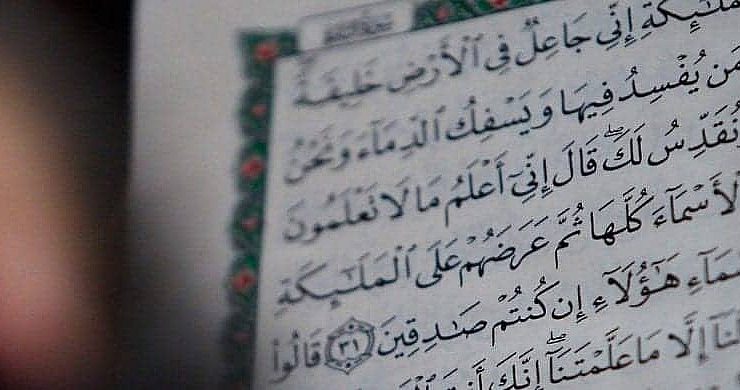 إِنِّي جَاعِلٌ فِي ٱلْأَرْضِ خَلِيفَةً
مَن يُفْسِدُ فِيهَا وَيَسْفِكُ ٱلدِّمَآءَ وَنَحْنُ
وَنُقَدِّسُ لَكَۖ قَالَ إِنِّيٓ أَعْلَمُ مَا لَا تَعْلَمُونَ
ٱلْأَسْمَآءَ كُلَّهَا ثُمَّ عَرَضَهُمْ عَلَى ٱلْمَلَٰٓئِكَةِ
هَٰٓؤُلَآءِ إِن كُنتُمْ صَٰدِقِينَ ٣١ قَالُوا۟
إِلَّا مَا عَلَّمْتَنَآۖ إِنَّكَ